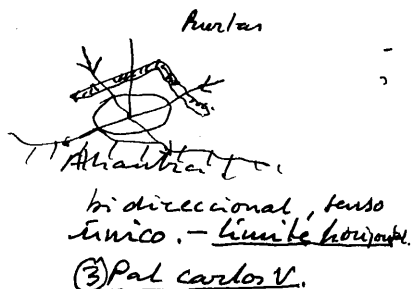 Puertas
Alhambra
bidireccional, senso
único. - límite horizontal.
③ Pal Carlos V.